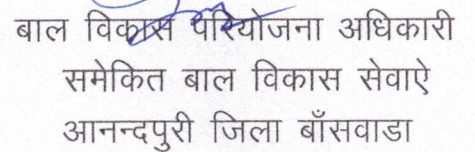 बाल विकास परियोजना अधिकारी
समेकित बाल विकास सेवाऐ
आनन्दपुरी जिला बाँसवाडा